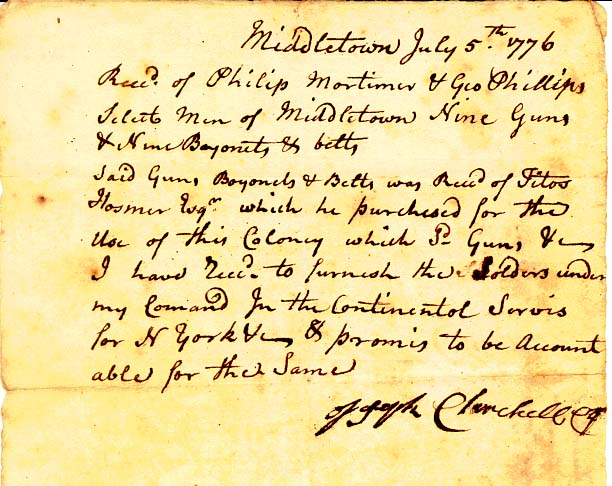 Middletown July 5th 1776
Recd. of Philip Mortimer & Geo Phillips
Select Men of Middletown Nine Guns
& Nine Bayonets & belts
Said Guns Boyonets & Belts was Recd of Titos
Hosmer Esqr. which he purchesed for the
Use of this Coloney which Sd. Guns &c
I have Recd. to furnish the Solders under
my Comand In the Continentol Servis
for N York &c & promis to be Account
able for the Same
Joseph Churchell